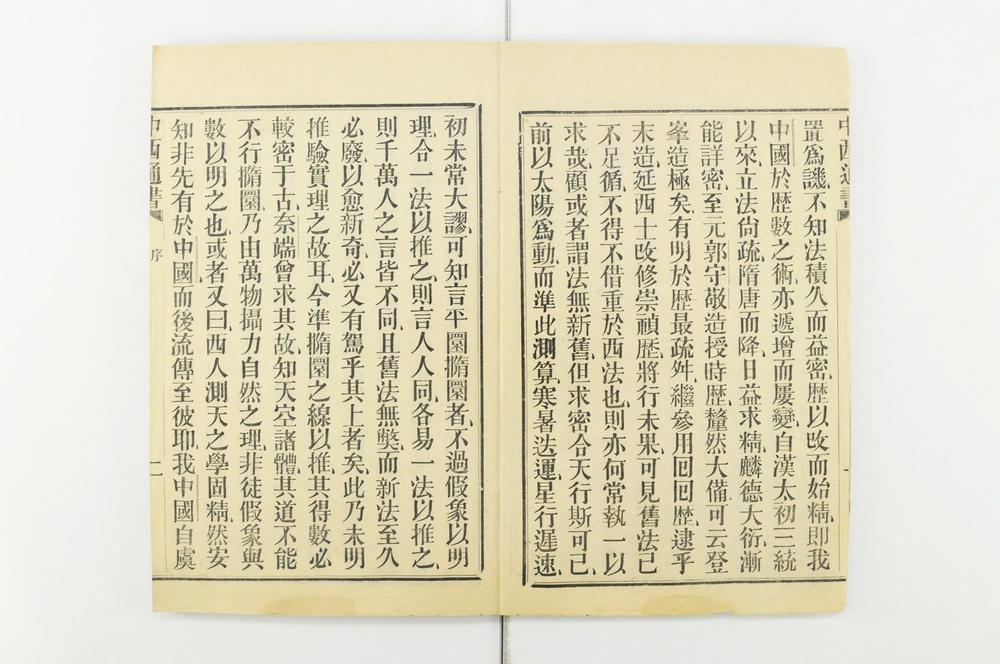 中西通書
置爲譏不知法積久而益密歴以改而始精即我
中國於歴數之術亦遞增而屢變自漢太初三統
以來立法尙疏隋唐而降日益求精麟德大衍漸
能詳密至元郭守敬造授時歴釐然大備可云登
峯造極矣有明於歴最疏舛繼參用囘囘歴逮乎
末造延西士改修崇禎歴將行未果可見舊法已
不足循不得不借重於西法也則亦何常執一以
求哉顧或者謂法無新舊但求密合天行斯可已
前以太陽爲動而準此測算寒暑迭運星行遲速
初未常大謬可知言平圜撱圜者不過假象以明
理合一法以推之則言人人同各易一法以推之
則千萬人之言皆不同且舊法無獘而新法至久
必廢以愈新奇必又有駕乎其上者矣此乃未明
推驗實理之故耳今準撱圜之線以推其得數必
較密于古奈端曾求其故知天空諸體其道不能
不行撱圜乃由萬物攝力自然之理非徒假象與
數以明之也或者又曰西人測天之學固精然安
知非先有於中國而後流傳至彼耶我中國自虞
中西通書
序
二